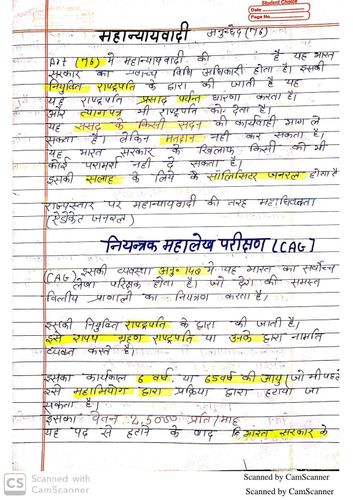 Student Choice
Date
Page No.
महान्यायवादी अनुच्छेद (76)
Art (76) में महान्यायवादी की है यह भारत
सरकार का विधि अधिकारी होता है। इसकी
नियुक्ति राष्ट्रपति के द्वारा की जाती है यह
यह राष्ट्रपति प्रसाद पर्यन्त धारणा करता है।
और त्यागपत्र भी राष्ट्रपति को देता है।
यह संसद के किसी सदन की कार्यवाही भाग ले
सकता है। लेकिन मतदान नही कर सकता है।
यह भारत सरकार के खिलाफ किसी को भी
कोई परामर्श नही दे सकता है।
इसकी सलाह के लिये के सॉलिसिटर जनरल होता है
राज्यस्तर पर महान्यायवादी की तरह महाधिवक्ता
(ऐडोकेट जनरल)
नियन्त्रक महालेखा परीक्षण (CAG)
(CAG) इसकी व्यवस्था अनु० 148 में यह भारत का सर्वोच्च
लेखा परिक्षक होता है। जो देश की समस्त
वित्तीय प्रणाली का नियंत्रण करता है।
इसकी नियुक्ति राष्ट्रपति के द्वारा की जाती है।
इसे शपथ ग्रहण राष्ट्रपति या उनके द्वारा नामित
व्यक्ति करते है।
इसका कार्यकाल 6 वर्ष या 65 वर्ष की आयु (जो भी पहले
इसे महाभियोग द्वारा प्रक्रिया द्वारा हटाया जा
सकता है।
इसका वेतन प्रति/माह
यह पद से हटाने के बाद भारत सरकार के
CS Scanned with
CamScanner
Scanned by CamScanner
Scanned by CamScanner